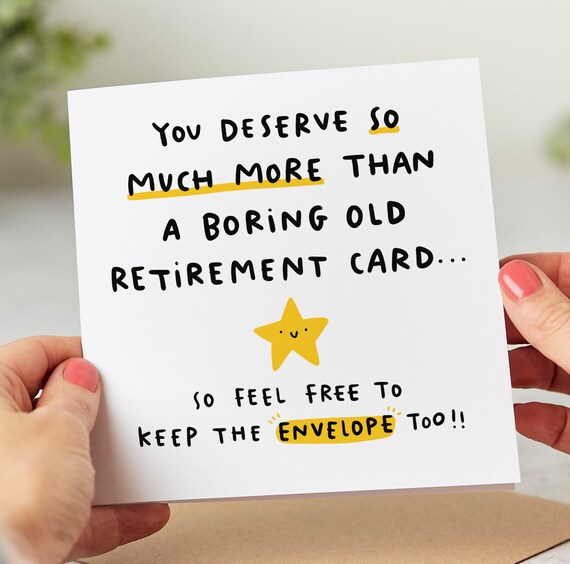 YOU DESERVE SO
MUCH MORE THAN
A BORING OLD
RETIREMENT CARD...
SO FEEL FREE TO
KEEP THE ENVELOPE TOO!!